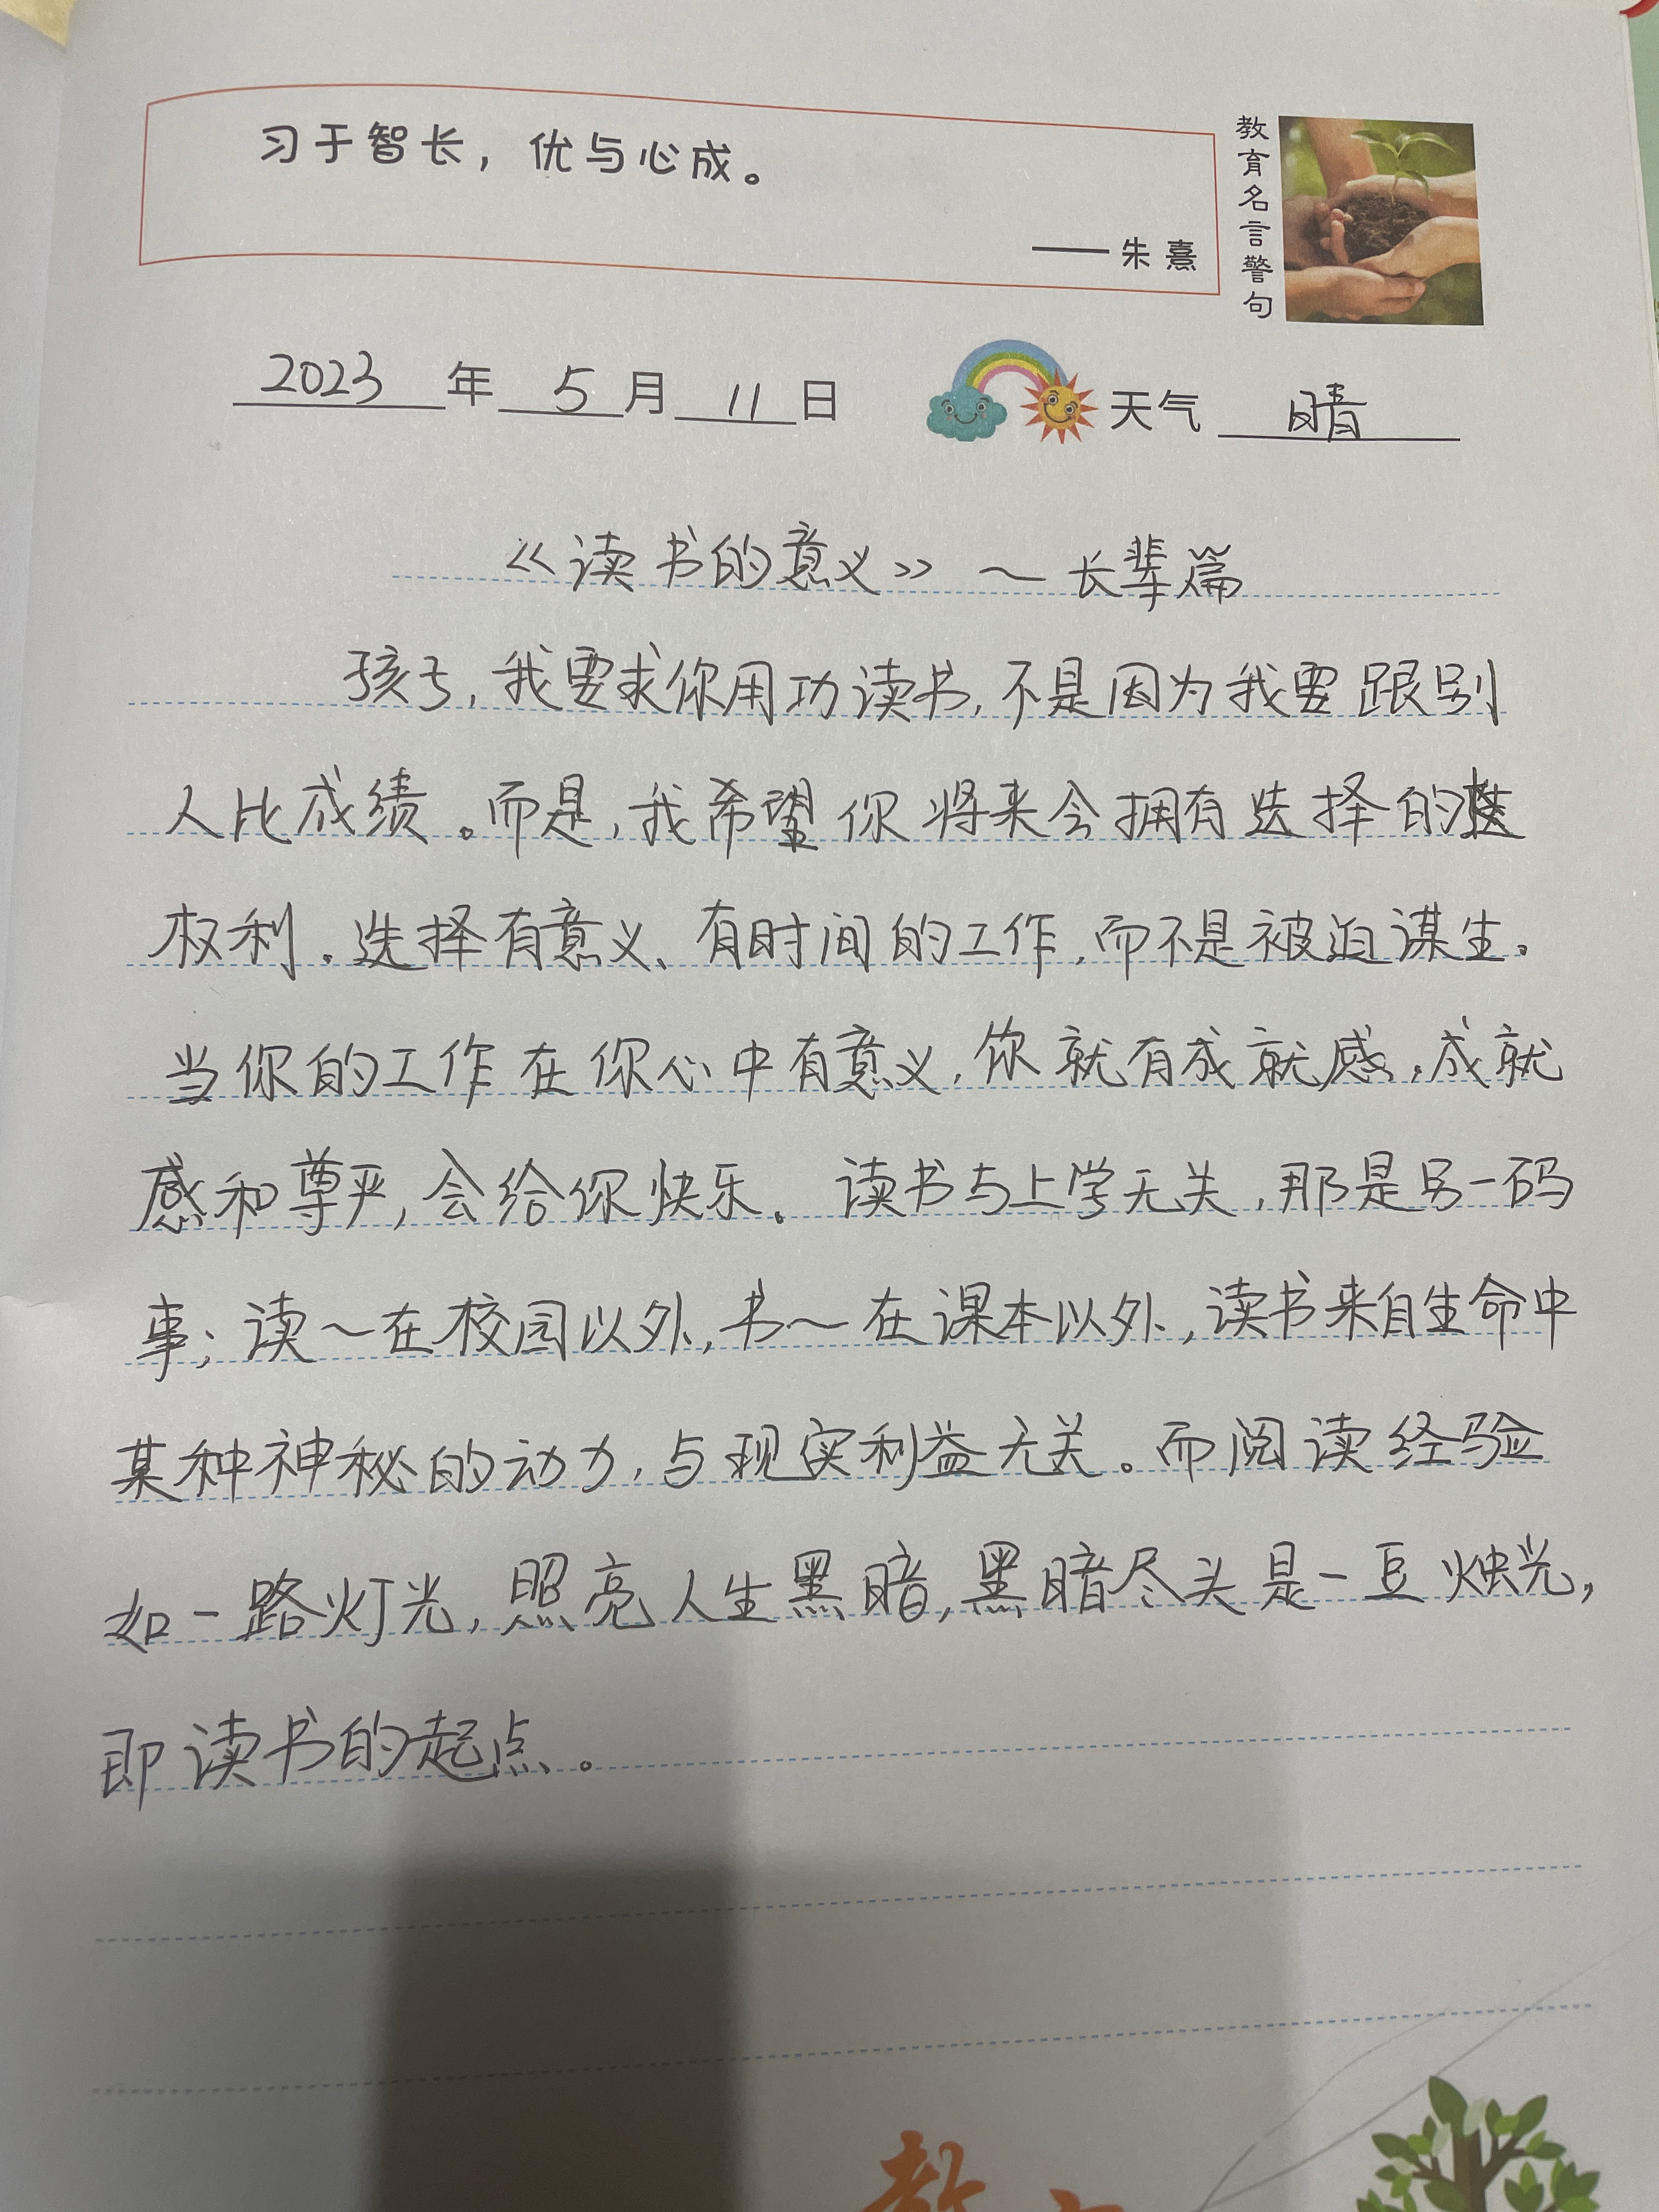 习于智长，优与心成。
——朱熹
教育名言警句
2023年5月11日 天气 晴
《读书的意义》～长辈篇
孩子，我要求你用功读书，不是因为我要跟别
人比成绩。而是，我希望你将来会拥有选择的
权利。选择有意义、有时间的工作，而不是被迫谋生。
当你的工作在你心中有意义，你就有成就感，成就
感和尊严，会给你快乐。读书与上学无关，那是另一码
事；读～在校园以外，书～在课本以外，读书来自生命中
某种神秘的动力，与现实利益无关。而阅读经验
如一路灯光，照亮人生黑暗，黑暗尽头是一豆烛光，
即读书的起点。